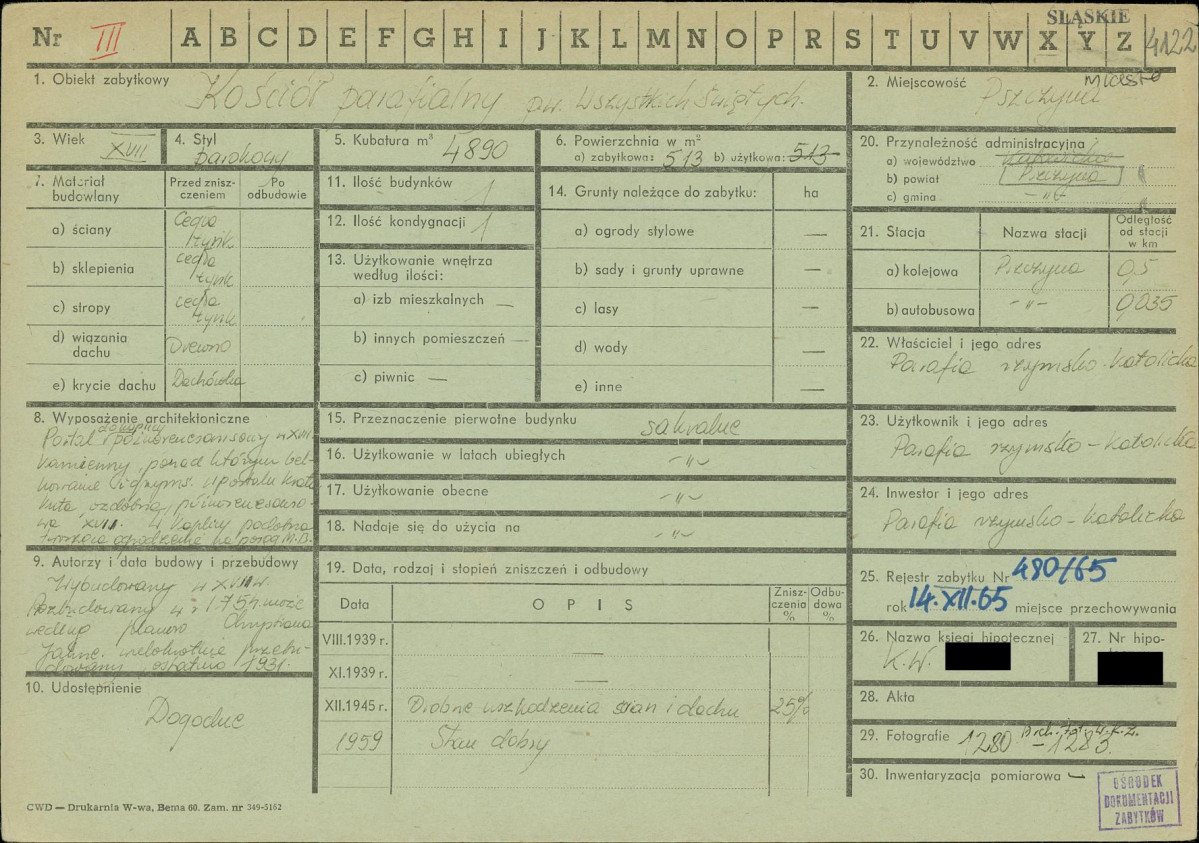 ŚLĄSKIE
Nr III A B C D E F G H I J K L M N O P R S T U V W X Y Z 4122
1. Obiekt zabytkowy Kościół parafialny pw. Wszystkich Świętych.
2. Miejscowość Pszczyna miasto
3. Wiek XVII
4. Styl barokowy
5. Kubatura m³ 4890
6. Powierzchnia w m²
a) zabytkowa: 513 b) użytkowa: 513
20. Przynależność administracyjną
a) województwo
b) powiat Pszczyna
c) gmina -„-
7. Materiał budowlany
Przed zniszczeniem
Po odbudowie
a) ściany Cegła tynk
b) sklepienia cegła tynk
c) stropy cegła tynk
d) wiązania dachu Drewno
e) krycie dachu Dachówka
11. Ilość budynków 1
12. Ilość kondygnacji 1
13. Użytkowanie wnętrza według ilości:
a) izb mieszkalnych —
b) innych pomieszczeń —
c) piwnic —
14. Grunty należące do zabytku: ha
a) ogrody stylowe —
b) sady i grunty uprawne —
c) lasy —
d) wody —
e) inne —
21. Stacja Nazwa stacji Odległość od stacji w km
a) kolejowa Pszczyna 0,5
b) autobusowa -„- 0,035
22. Właściciel i jego adres
Parafia rzymsko-Katolicka
8. Wyposażenie architektoniczne
do kaplicy
Portal późnorenesansowy w XVII.
kamienny, ponad którym bel-
kowanie i gzyms. W portalu krata
kuta, ozdobna, późnorenesanso-
wa XVII. W kaplicy podobna
15. Przeznaczenie pierwotne budynku sakralne
16. Użytkowanie w latach ubiegłych -„-
17. Użytkowanie obecne -„-
18. Nadaje się do użycia na -„-
23. Użytkownik i jego adres
Parafia rzymsko-Katolicka
24. Inwestor i jego adres
Parafia rzymsko-Katolicka
9. Autorzy i data budowy i przebudowy
Wybudowany w XVII w.
Rozbudowany w r. 1754 może
według planów
wielokrotnie przebu-
dowany, ostatnio 1931.
10. Udostępnienie
Dogodne
19. Data, rodzaj i stopień zniszczeń i odbudowy
Data OPIS Zniszczenia % Odbudowa %
VIII.1939 r. —
XI.1939 r. —
XII.1945 r. Drobne uszkodzenia ścian i dachu 25%
1959 Stan dobry
25. Rejestr zabytku Nr 480/65
rok 14.XII.65 miejsce przechowywania
26. Nazwa księgi hipotecznej
K.W.
27. Nr hipo-
28. Akta
29. Fotografie 1280 - 1283.
30. Inwentaryzacja pomiarowa —
OŚRODEK
DOKUMENTACJI
ZABYTKÓW
CWD — Drukarnia W-wa, Bema 60. Zam. nr 349-5162